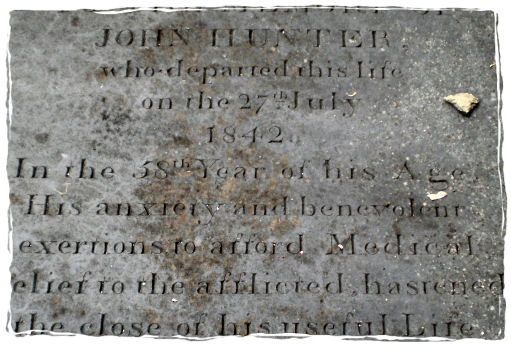 JOHN HUNTER,
who departed this life
on the 27th July
1842.
In the 58th Year of his Age.
His anxiety and benevolent
exertions to afford Medical
elief to the afflicted, hastened
the close of his useful Life